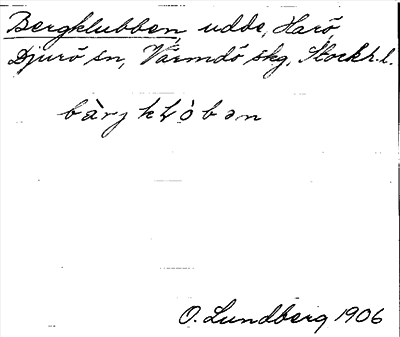 Bergklubben, udde, Harö,
Djurö sn, Värmdö skg, Stockh. l.
bàrj klòbən
O. Lundberg 1906